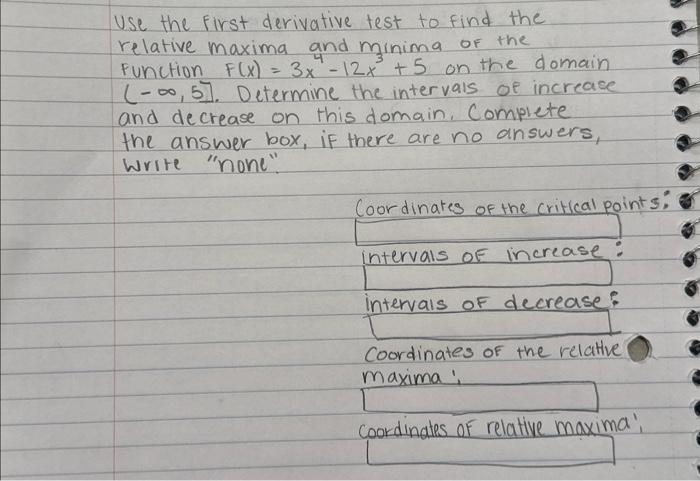 Use the First derivative test to find the
relative maxima and minima of the
Function F(x) = 3x⁴ - 12x³ + 5 on the domain
(-∞, 5]. Determine the intervals of increase
and decrease on this domain. Complete
the answer box, if there are no answers,
write "none".
Coordinates of the critical points:
intervals of increase:
intervals of decrease:
Coordinates of the relative
maxima:
coordinates of relative maxima: